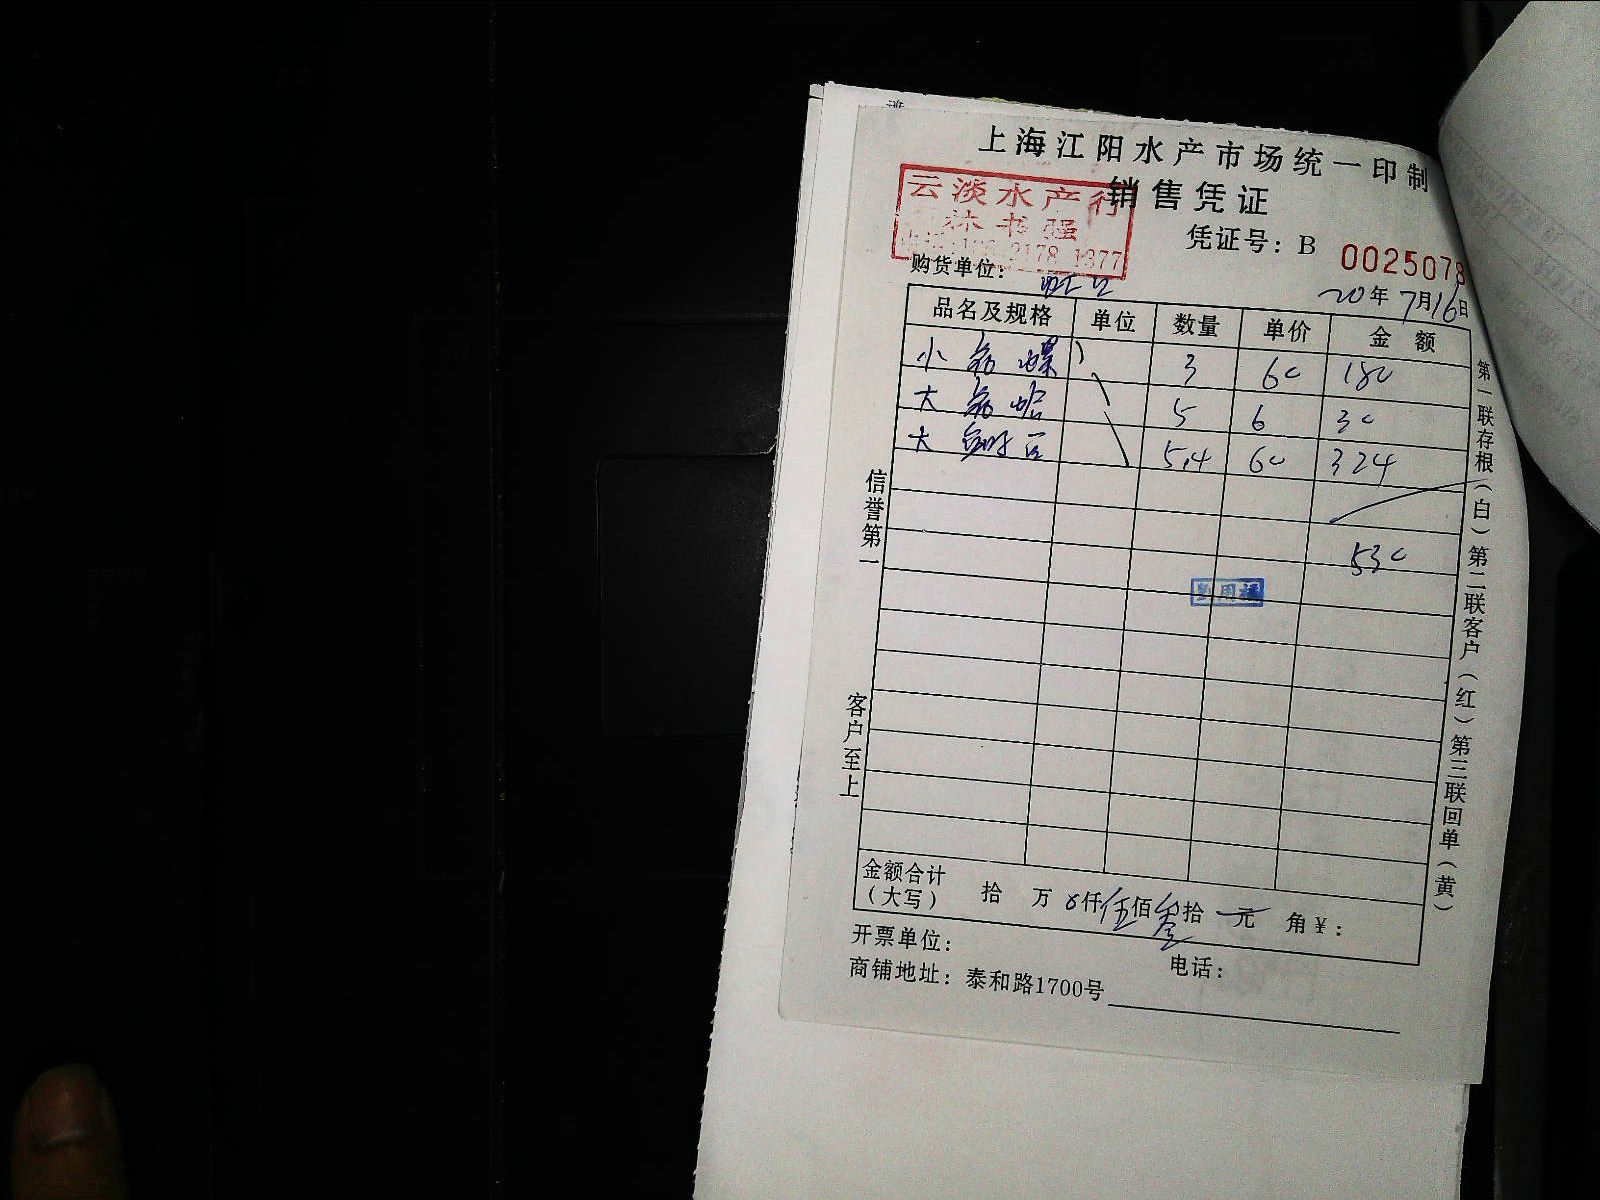 上海江阳水产市场统一印制
销售凭证
云淡水产行
林书强
2178 1377
凭证号：B 0025078
购货单位：
20年7月16日
品名及规格 单位 数量 单价 金额
小 螺 3 60 180
大 5 6 30
大 5.4 60 324
530
信誉第一
客户至上
第一联存根（白）第二联客户（红）第三联回单（黄）
金额合计（大写） 拾 万 0仟伍佰叁拾 元 角￥：
开票单位：
电话：
商铺地址：泰和路1700号